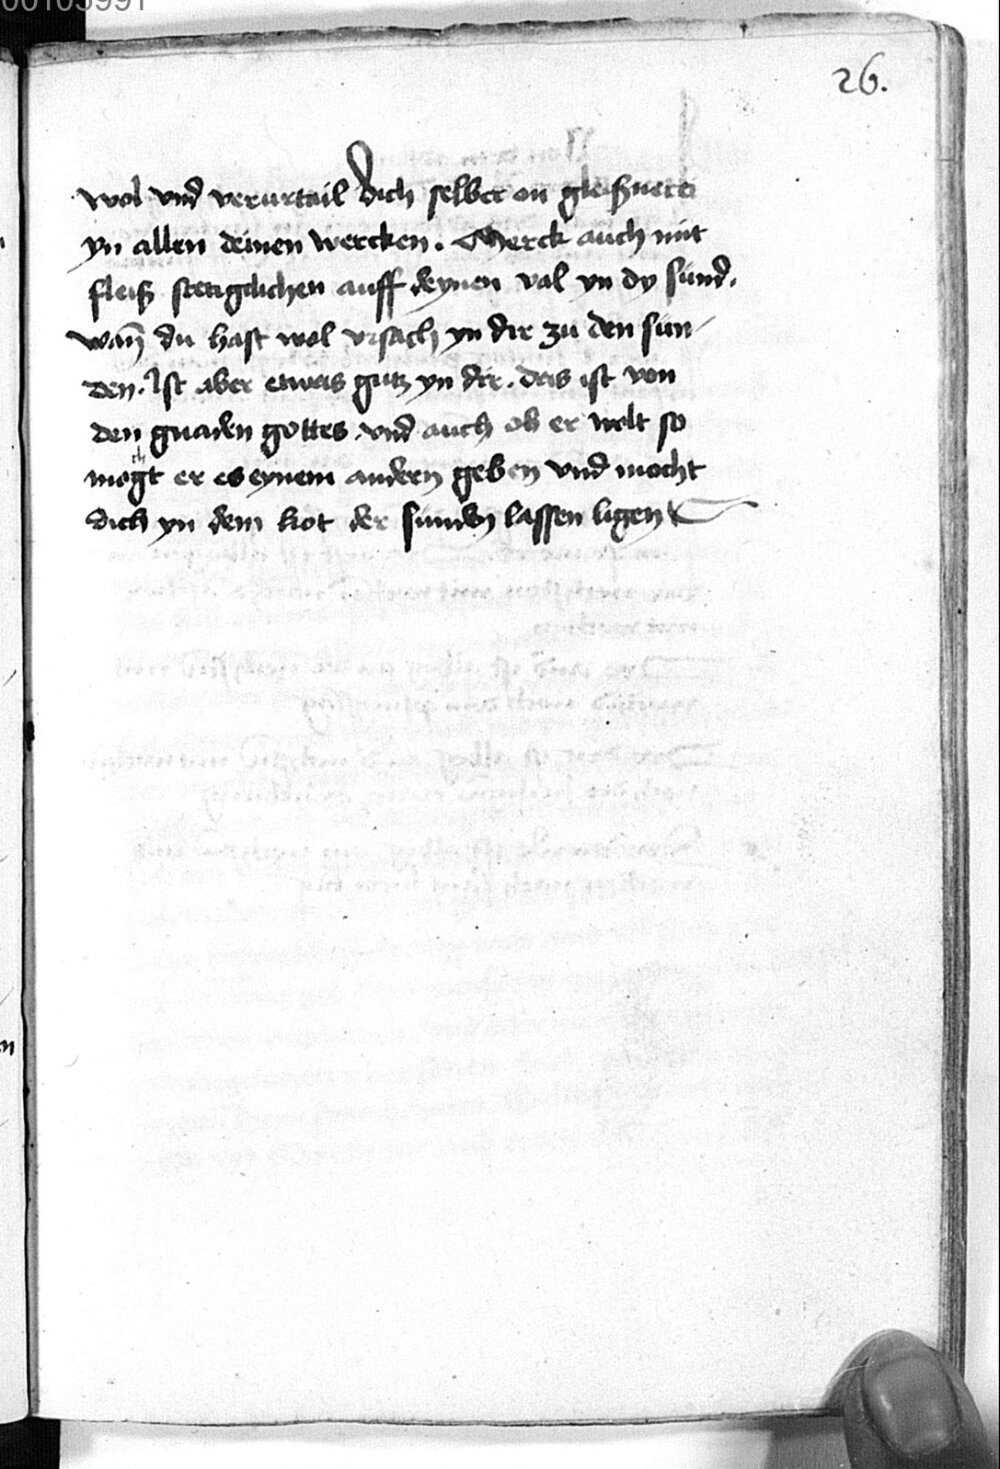 00103991
26.
wol vnd verurtail dich selber on gleißnerei
yn allen deinen wercken. Merck auch mit
fleiß stetigclichen auff deynen val yn dy sünd.
wañ du hast wol vrsach yn dir zu den sün-
den. Ist aber etwas gutz yn dir. das ist von
den gnaden gottes. vnd auch ob er wolt so
möcht er es eynem andern geben vnd mocht
dich yn dem kot der sunden lassen ligen